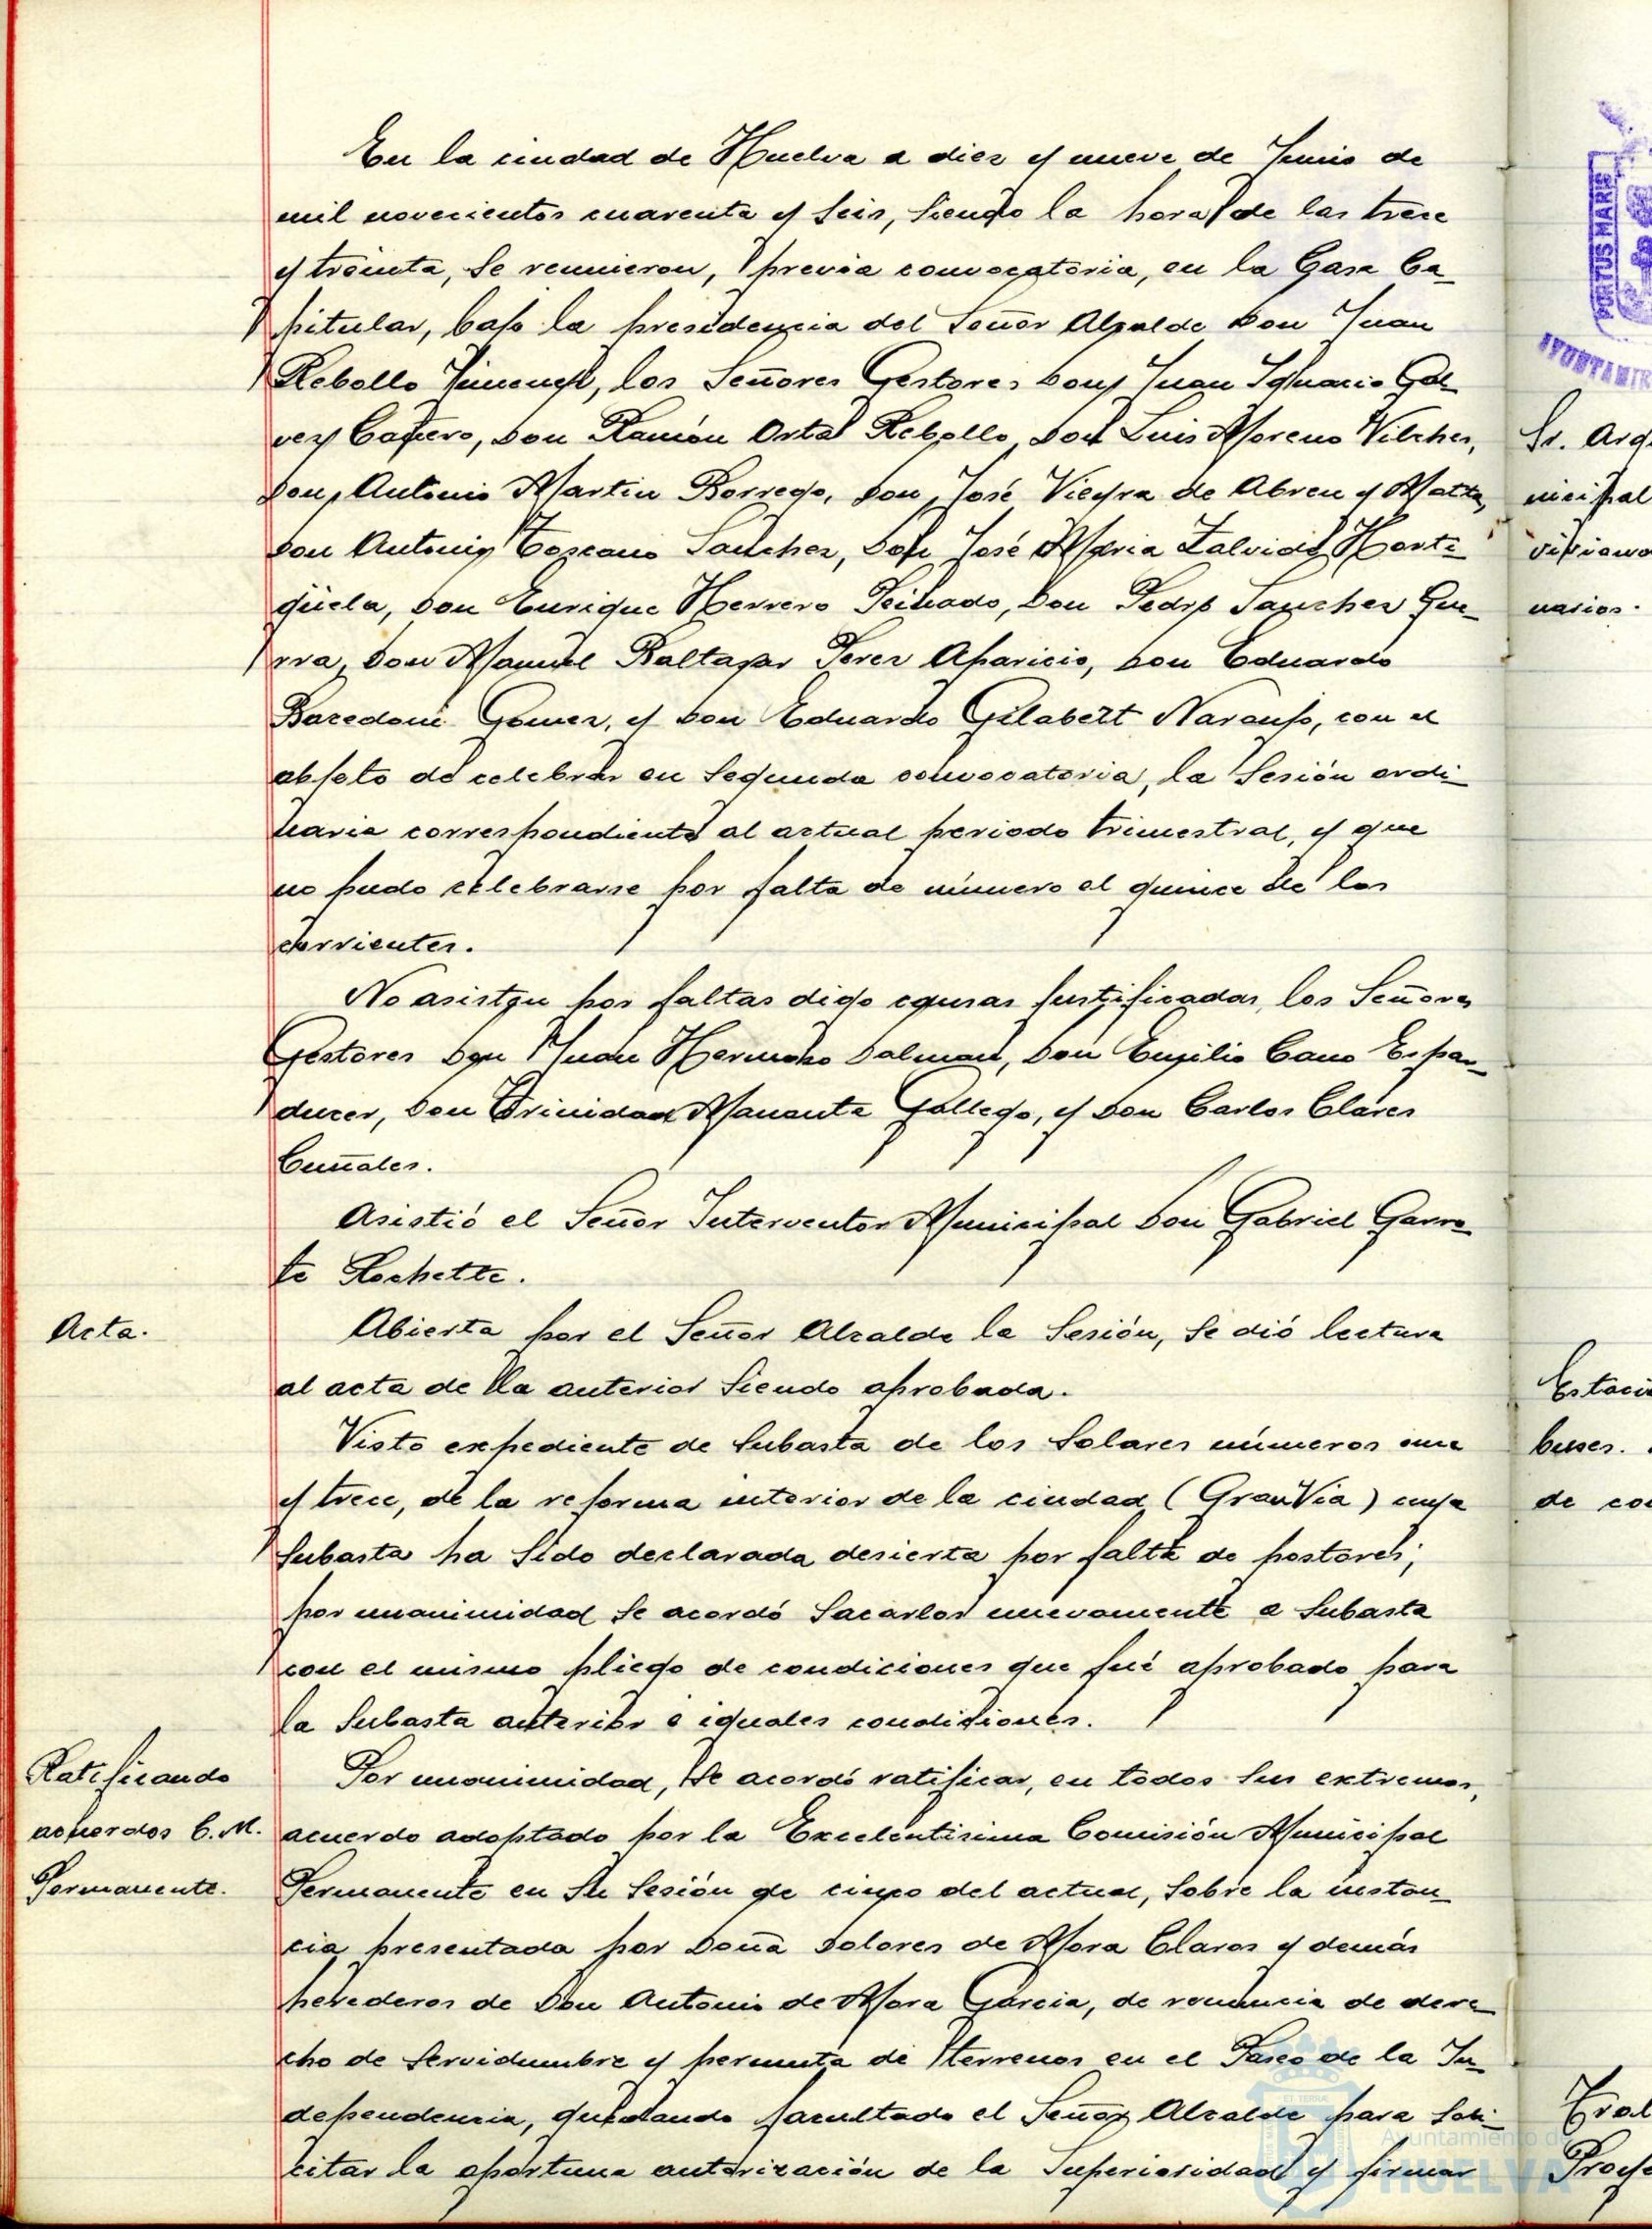 En la ciudad de Huelva a diez y nueve de Junio de
mil novecientos cuarenta y seis, siendo la hora de las trece
y treinta, se reunieron, previa convocatoria, en la Casa Ca-
pitular, bajo la presidencia del Señor Alcalde Don Juan
Rebollo Jimenez, los Señores Gestores Don Juan Ignacio Gal-
vez Cañero, Don Ramón Ortal Rebollo, Don Luis Moreno Vilches,
Don Antonio Martin Borrego, Don José Vieyra de Abreu y Motta,
Don Antonio Toscano Sanchez, Don José Maria Zalvide Horti-
güela, Don Enrique Herrero Peinado, Don Pedro Sanchez Gue-
rra, Don Manuel Baltasar Perez Aparicio, Don Eduardo
Bacedoni Gomez, y Don Eduardo Gilabert Naranjo, con el
objeto de celebrar en segunda convocatoria, la sesión ordi-
naria correspondiente al actual periodo trimestral, y que
no pudo celebrarse por falta de número el quince de los
corrientes.
No asisten por faltas digo causas justificadas, los Señores
Gestores Don Juan Hermoso Dalman, Don Emilio Cano
Don Trinidad Gallego, y Don Carlos Clares
Cuñales.
Asistió el Señor Interventor Municipal Don Gabriel Garro-
te Rochette.
Acta.
Abierta por el Señor Alcalde la sesión, se dió lectura
al acta de la anterior siendo aprobada.
Visto expediente de subasta de los solares números once
y trece, de la reforma interior de la ciudad (Gran Via) cuya
subasta ha sido declarada desierta por falta de postores;
por unanimidad se acordó sacarlos nuevamente a subasta
con el mismo pliego de condiciones que fué aprobado para
la subasta anterior e iguales condiciones.
Ratificando
acuerdos C. M.
Permanente.
Por unanimidad, se acordó ratificar, en todos sus extremos,
acuerdo adoptado por la Excelentisima Comisión Municipal
Permanente en su sesión de cinco del actual, sobre la instan-
cia presentada por Doña Dolores de Mora Claros y demás
herederos de Don Antonio de Mora Garcia, de renuncia de dere-
cho de servidumbre y permuta de terrenos en el Paseo de la In-
dependencia, quedando facultado el Señor Alcalde para soli-
citar la oportuna autorización de la Superioridad y firmar
PORTUS MARIS
AYUNTAMIE
Sr. Arq
nicipal
narios.
Estaci
buses.
de co
Ayuntamiento de
HUELVA